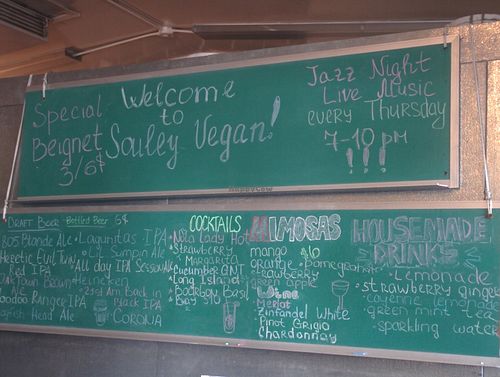 Special
Beignet
3/6$
Welcome
to
Souley Vegan!
Jazz Night
Live Music
every Thursday
7-10 pm
!!!
HappyCow
DRAFT Beer - Bottled Beer 6$
805 Blonde Ale • Lagunitas IPA
Heretic Evil Twin • Lil Sumpin Ale
Red IPA • All day IPA Session Ale
Town Brown • Heineken
Voodoo Ranger IPA • 21st Am. Back in
Black IPA
Spanish Head Ale
CORONA
COCKTAILS
• Nola Lady Hot
• Strawberry
Margarita
• Cucumber GNT
• Long Island
• Bourbon Basil
• Bay
MIMOSAS
mango $10
orange • Pomegranate
strawberry
green apple
Wine
Merlot
• Zinfandel White
• Pinot Grigio
Chardonnay
HOUSEMADE
DRINKS
• Lemonade
• strawberry ginger
• cayenne lemon
• green mint tea
• sparkling water